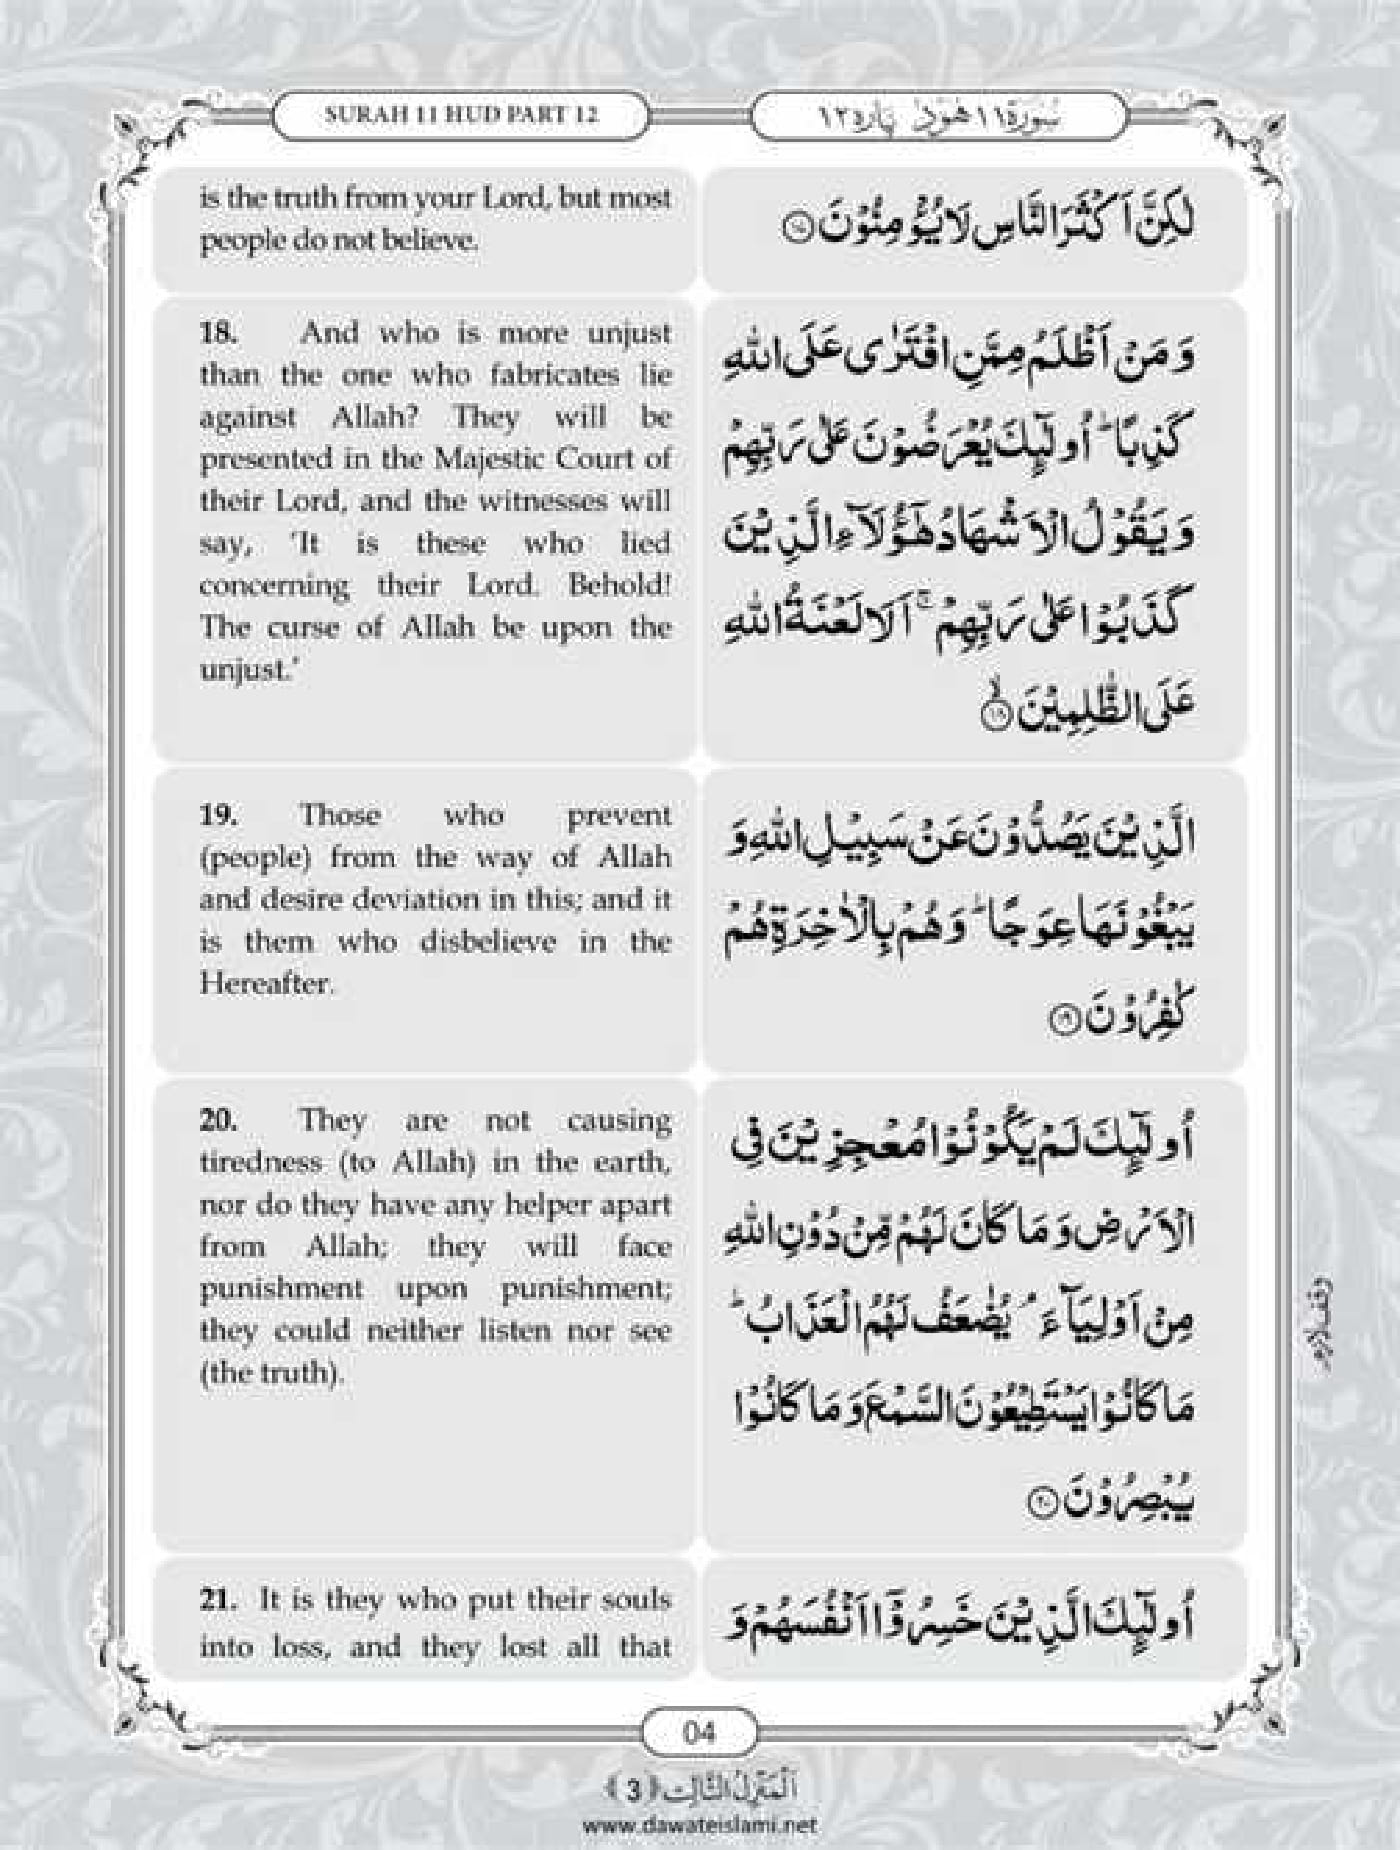 SURAH 11 HUD PART 12
سُوْرَة ١١ هُوْد پَارَه ١٢
is the truth from your Lord, but most
people do not believe.
لٰكِنَّ اَكْثَرَ النَّاسِ لَا يُؤْمِنُوْنَ ﴿١٧﴾
18. And who is more unjust
than the one who fabricates lie
against Allah? They will be
presented in the Majestic Court of
their Lord, and the witnesses will
say, 'It is these who lied
concerning their Lord. Behold!
The curse of Allah be upon the
unjust.'
وَ مَنْ اَظْلَمُ مِمَّنِ افْتَرٰى عَلَى اللّٰهِ
كَذِبًا ؕ اُولٰٓئِكَ يُعْرَضُوْنَ عَلٰى رَبِّهِمْ
وَ يَقُوْلُ الْاَشْهَادُ هٰۤؤُلَآءِ الَّذِيْنَ
كَذَبُوْا عَلٰى رَبِّهِمْ ۚ اَلَا لَعْنَةُ اللّٰهِ
عَلَى الظّٰلِمِيْنَ ﴿١٨﴾ۙ
19. Those who prevent
(people) from the way of Allah
and desire deviation in this; and it
is them who disbelieve in the
Hereafter.
الَّذِيْنَ يَصُدُّوْنَ عَنْ سَبِيْلِ اللّٰهِ وَ
يَبْغُوْنَهَا عِوَجًا ؕ وَ هُمْ بِالْاٰخِرَةِ هُمْ
كٰفِرُوْنَ ﴿١٩﴾
20. They are not causing
tiredness (to Allah) in the earth,
nor do they have any helper apart
from Allah; they will face
punishment upon punishment;
they could neither listen nor see
(the truth).
اُولٰٓئِكَ لَمْ يَكُوْنُوْا مُعْجِزِيْنَ فِى
الْاَرْضِ وَ مَا كَانَ لَهُمْ مِّنْ دُوْنِ اللّٰهِ
مِنْ اَوْلِيَآءَ ۘ يُضٰعَفُ لَهُمُ الْعَذَابُ ؕ
مَا كَانُوْا يَسْتَطِيْعُوْنَ السَّمْعَ وَ مَا كَانُوْا
يُبْصِرُوْنَ ﴿٢٠﴾
وقف لازم
21. It is they who put their souls
into loss, and they lost all that
اُولٰٓئِكَ الَّذِيْنَ خَسِرُوْۤا اَنْفُسَهُمْ وَ
04
اَلْمَنْزِلُ الثَّالِث ﴿3﴾
www.dawateislami.net